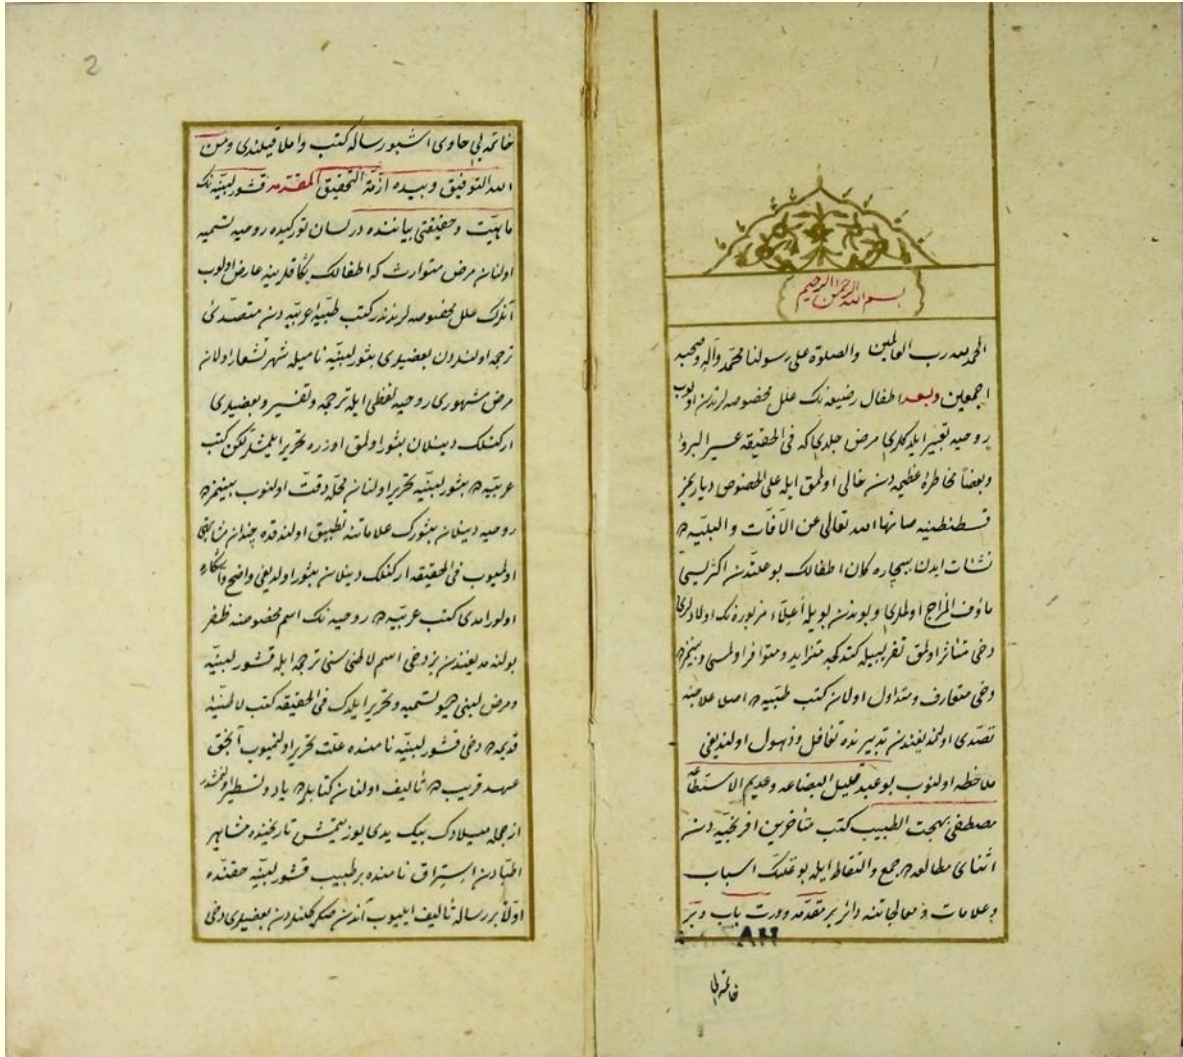 بسم الله الرحمن الرحيم
الحمد لله رب العالمين والصلوة على رسولنا محمد وآله وصحبه
اجمعين وبعد اطفال رضيعه نك علل مخصوصه لرندن اولوب
روحيه تعبير ايلدكلرى مرض جلدى كه فى الحقيقه عسير البرؤ
وبعضا مخاطرۀ عظيمه دن خالى اولمق ايله على الخصوص ديار يمز
قسطنطنيه صانها الله تعالى عن الآفات والبليه ده
نشات ايدن بيچاره كان اطفالك بو علتدن اكثريسى
مأوف المزاج اولملرى وبوندن بويله أعلاء مزبوره نك اولادلرى
دخى متأثر اولمق تقريبيله كتدكجه متزايد ومتوافر اولمسى وبينمزده
دخى متعارف ومتداول اولان كتب طبيه ده اصلا علاجنه
تصدى اولنمديغندن تدبيرنده تغافل وذهول اولنديغى
ملاحظه اولنوب بو عبد قليل البضاعه وعديم الاستطاعه
مصطفى بهجت الطبيب كتب متأخرين افرنجيه دن
اثناى مطالعه ده جمع والتقاط ايله بو علتك اسباب
وعلامات ومعالجاتنه دائر بر مقدمه ودرت باب وبر
خاتمه يى
2
خاتمه يى حاوى اشبو رساله كتب واملا قيلندى ومن
الله التوفيق وبيده ازمة التحقيق المقدمه قشور لبنيه نك
ماهيت وحقيقتى بياننده در لسان توركيده روحيه تسميه
اولنان مرض متوارث كه اطفالك يكاقلرينه عارض اولوب
آنلرك علل مخصوصه لرندندر كتب طبيۀ عربيه دن متصدئ
ترجمه اولنلردن بعضيلرى بثور لبنيه ناميله شهرتشعار اولان
مرض مشهورى روحيه لفظى ايله ترجمه وتفسير وبعضيلرى
اركنلك دينلان بثور اولمق اوزره تحرير ايلمشلر لكن كتب
عربيه ده بثور لبنيه تحرير اولنان محله دقت اولنوب بينمزده
روحيه دينلان بثورك علاماتنه تطبيق اولندقده چندان مشابهتى
اولميوب فى الحقيقه اركنلك دينلان بثور اولديغى واضح وآشكاره
اولور امدى كتب عربيه ده روحيه نك اسم مخصوصنه ظفر
بولنه مديغندن بز دخى اسم لاطنى سنى ترجمه ايله قشور لبنيه
ومرض لبنى ديو تسميه وتحرير ايلدك فى الحقيقه كتب لاطنيۀ
قديمه ده دخى قشور لبنيه نامنده علت تحرير اولنميوب آنجق
عهد قريب ده تأليف اولنان كتابلرده ياد وتسطير اولنمشدر
از جمله ميلادك بيك يدى يوز يتمش تاريخنده مشاهير
اطبادن استراق نامنده بر طبيب قشور لبنيه حقنده
اولا بر رساله تأليف ايليوب آندن صكره كلنلردن بعضيلرى دخى